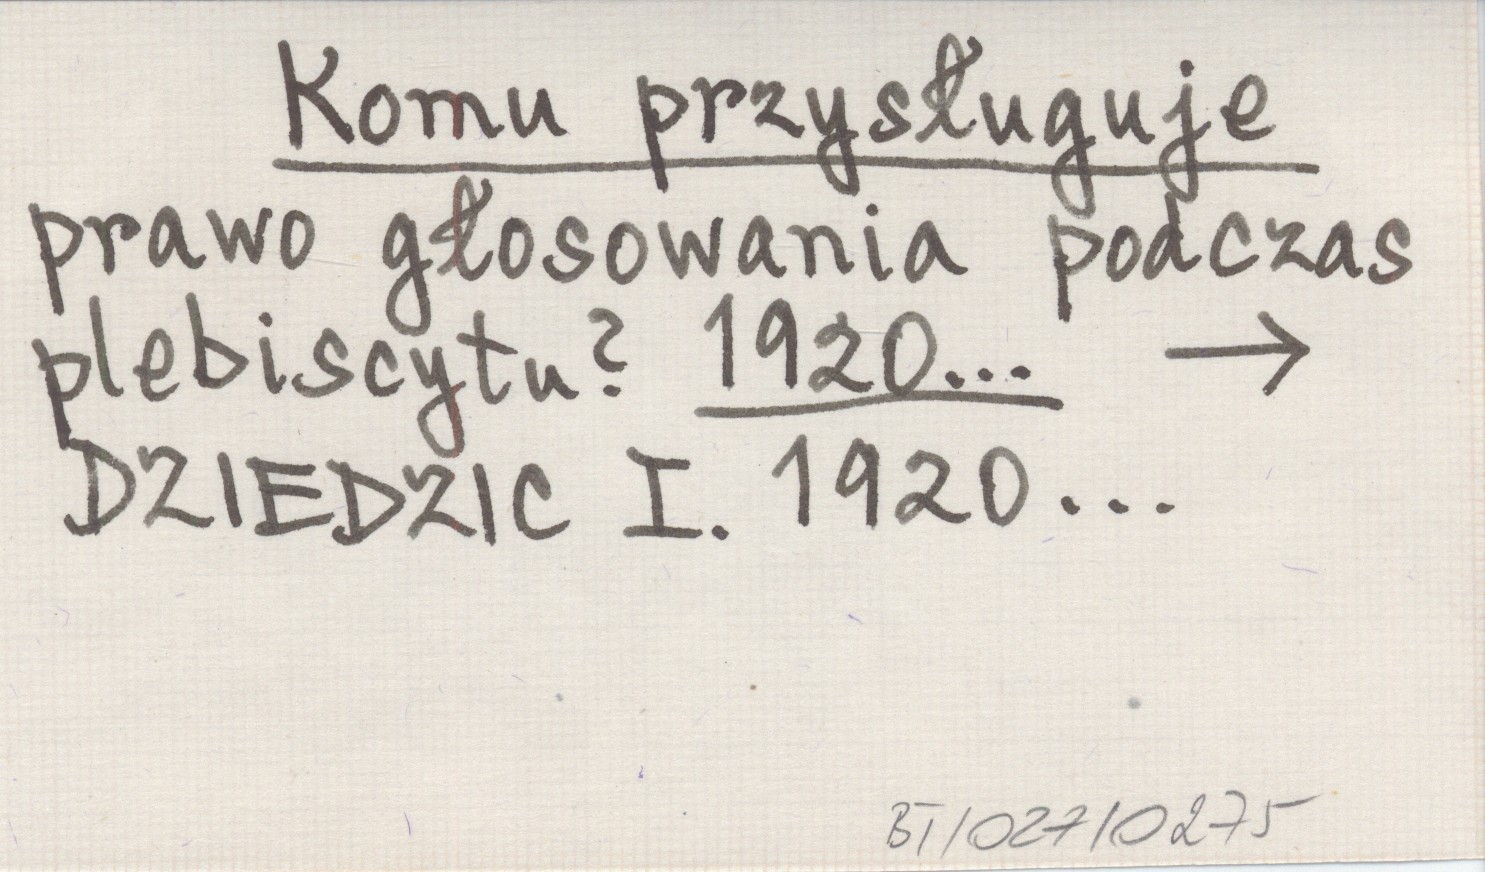 Komu przysługuje
prawo głosowania podczas
plebiscytu? 1920... →
DZIEDZIC I. 1920...
BT/027/0275